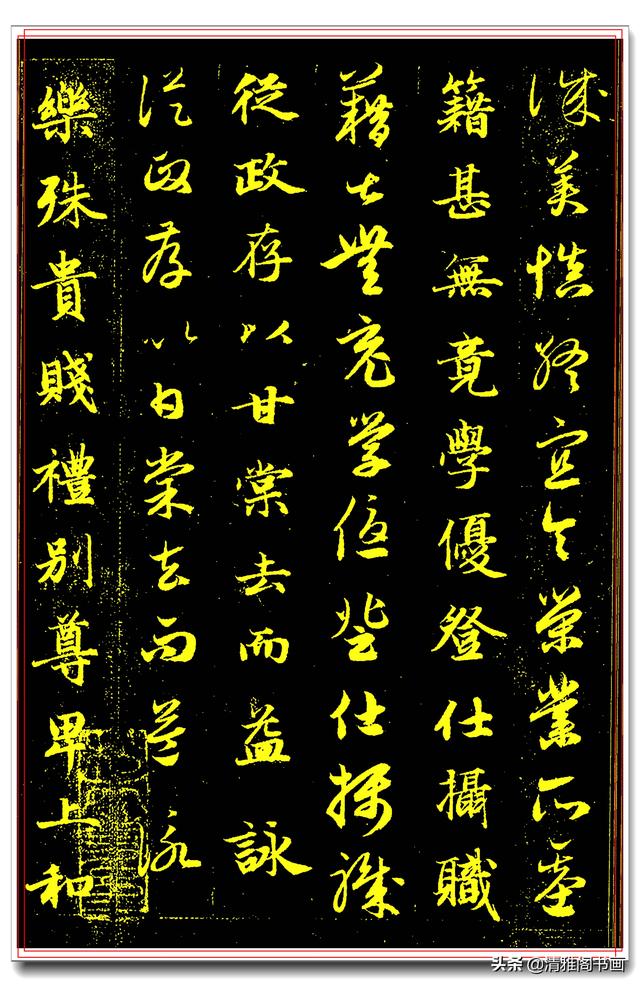 誠美慎終宜令榮業所基
籍甚無竟學優登仕攝職
籍甚無竟學優登仕攝職
從政存以甘棠去而益詠
從政存以甘棠去而益詠
樂殊貴賤禮別尊卑上和
头条 @清雅阁书画